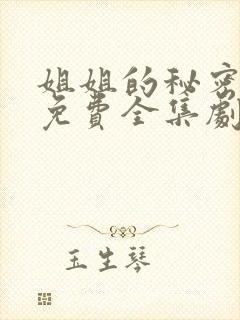 姐姐的秘密
免費全集劇
玉生琴